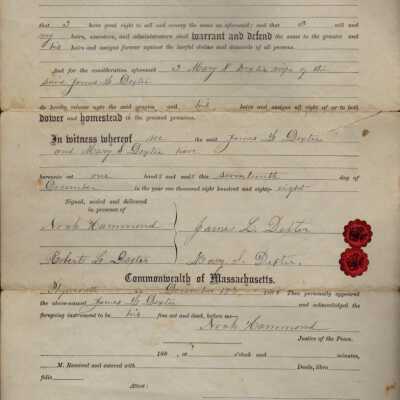 that I have good right to sell and convey the same as aforesaid; and that I will and
my heirs, executors, and administrators shall warrant and defend the same to the grantee and
his heirs and assigns forever against the lawful claims and demands of all persons.
And for the consideration aforesaid I Mary S Dexter wife of the
said James L. Dexter
do hereby release unto the said grantee and his heirs and assigns all right of or to both
dower and homestead in the granted premises.
In witness whereof we the said James L. Dexter
and Mary S Dexter have
hereunto set our hand s and seal s this seventeenth day of
December in the year one thousand eight hundred and eighty-eight
Signed, sealed and delivered
in presence of
Noah Hammond
James L. Dexter
Dexter
Mary S. Dexter.
Commonwealth of Massachusetts.
Plymouth ss December 17th 1888 Then personally appeared
the above-named James L Dexter and acknowledged the
foregoing instrument to be his free act and deed, before me—
Noah Hammond
Justice of the Peace.
188 , at o'clock and minutes,
M. Received and entered with Deeds, libro
folio
Attest: